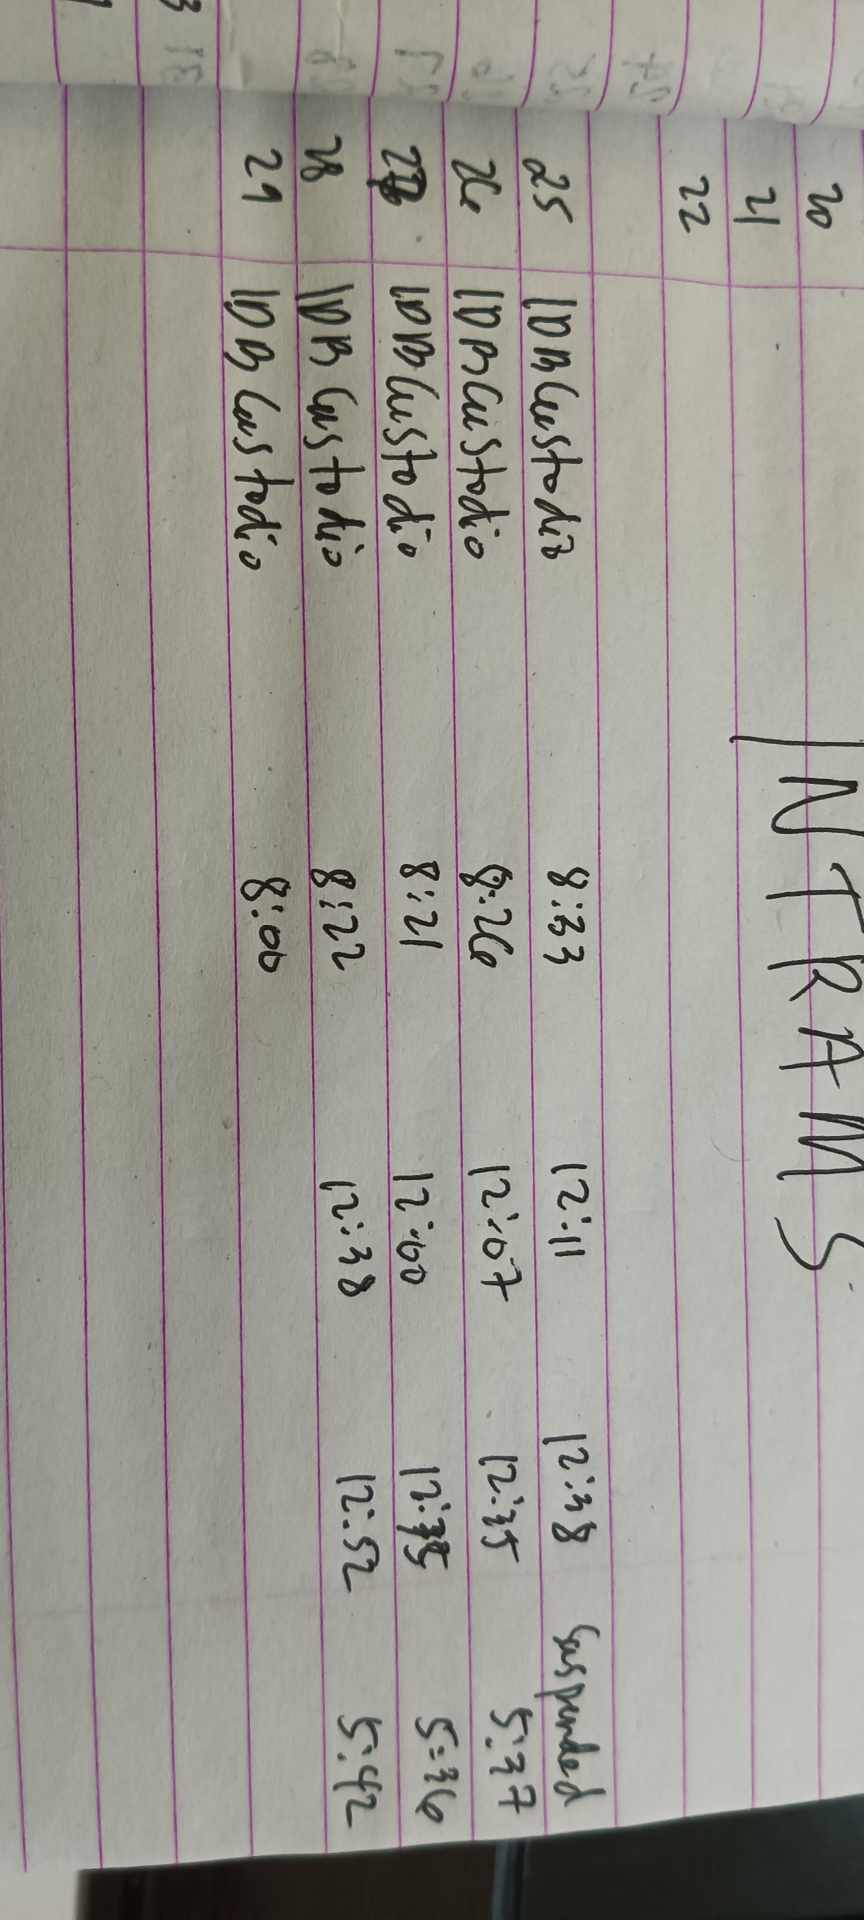 20
21 INTRAMS
22
25 IDBCustodio 8:33 12:11 12:38 Suspended
26 IDBCustodio 8:26 12:07 12:35 5:37
27 IDBCustodio 8:21 12:00 12:35 5:36
28 IDBCustodio 8:22 12:38 12:52 5:42
29 IDBCustodio 8:00